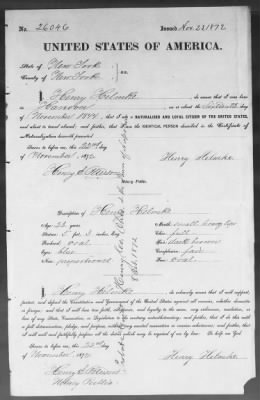 No. 26046 Issued Nov. 23, 1872
UNITED STATES OF AMERICA.
State of New York
County of New York } ss.
I, Henry Helmke do swear that I was born
in Hanover on or about the day of
November 1844; that I am a NATURALIZED AND LOYAL CITIZEN OF THE UNITED STATES,
and about to travel abroad; and further, that I am the IDENTICAL PERSON described in the Certificate of
Naturalization herewith presented.
Sworn to before me, this 22nd day
of November, 1872 Henry Helmke
Notary Public.
Description of Henry Helmke
Age: 28 years
Stature: 5 feet 3 inches
Forehead: oval
Eyes: blue
Nose: proportional
Mouth: small
Chin: full
Hair: dark brown
Complexion: fair
Face: oval
I, Henry Helmke do solemnly swear that I will support,
protect, and defend the Constitution and Government of the United States against all enemies, whether domestic
or foreign; and that I will bear true faith, allegiance, and loyalty to the same, any ordinance, resolution, or
law of any State, Convention, or Legislature to the contrary notwithstanding; and further, that I do this with
a full determination, pledge, and purpose, without any mental reservation or evasion whatsoever; and further,
that I will well and faithfully perform all the duties which may be required of me by law. So help me God.
Sworn to before me, this 22nd day
of November, 1872 Henry Helmke
Notary Public